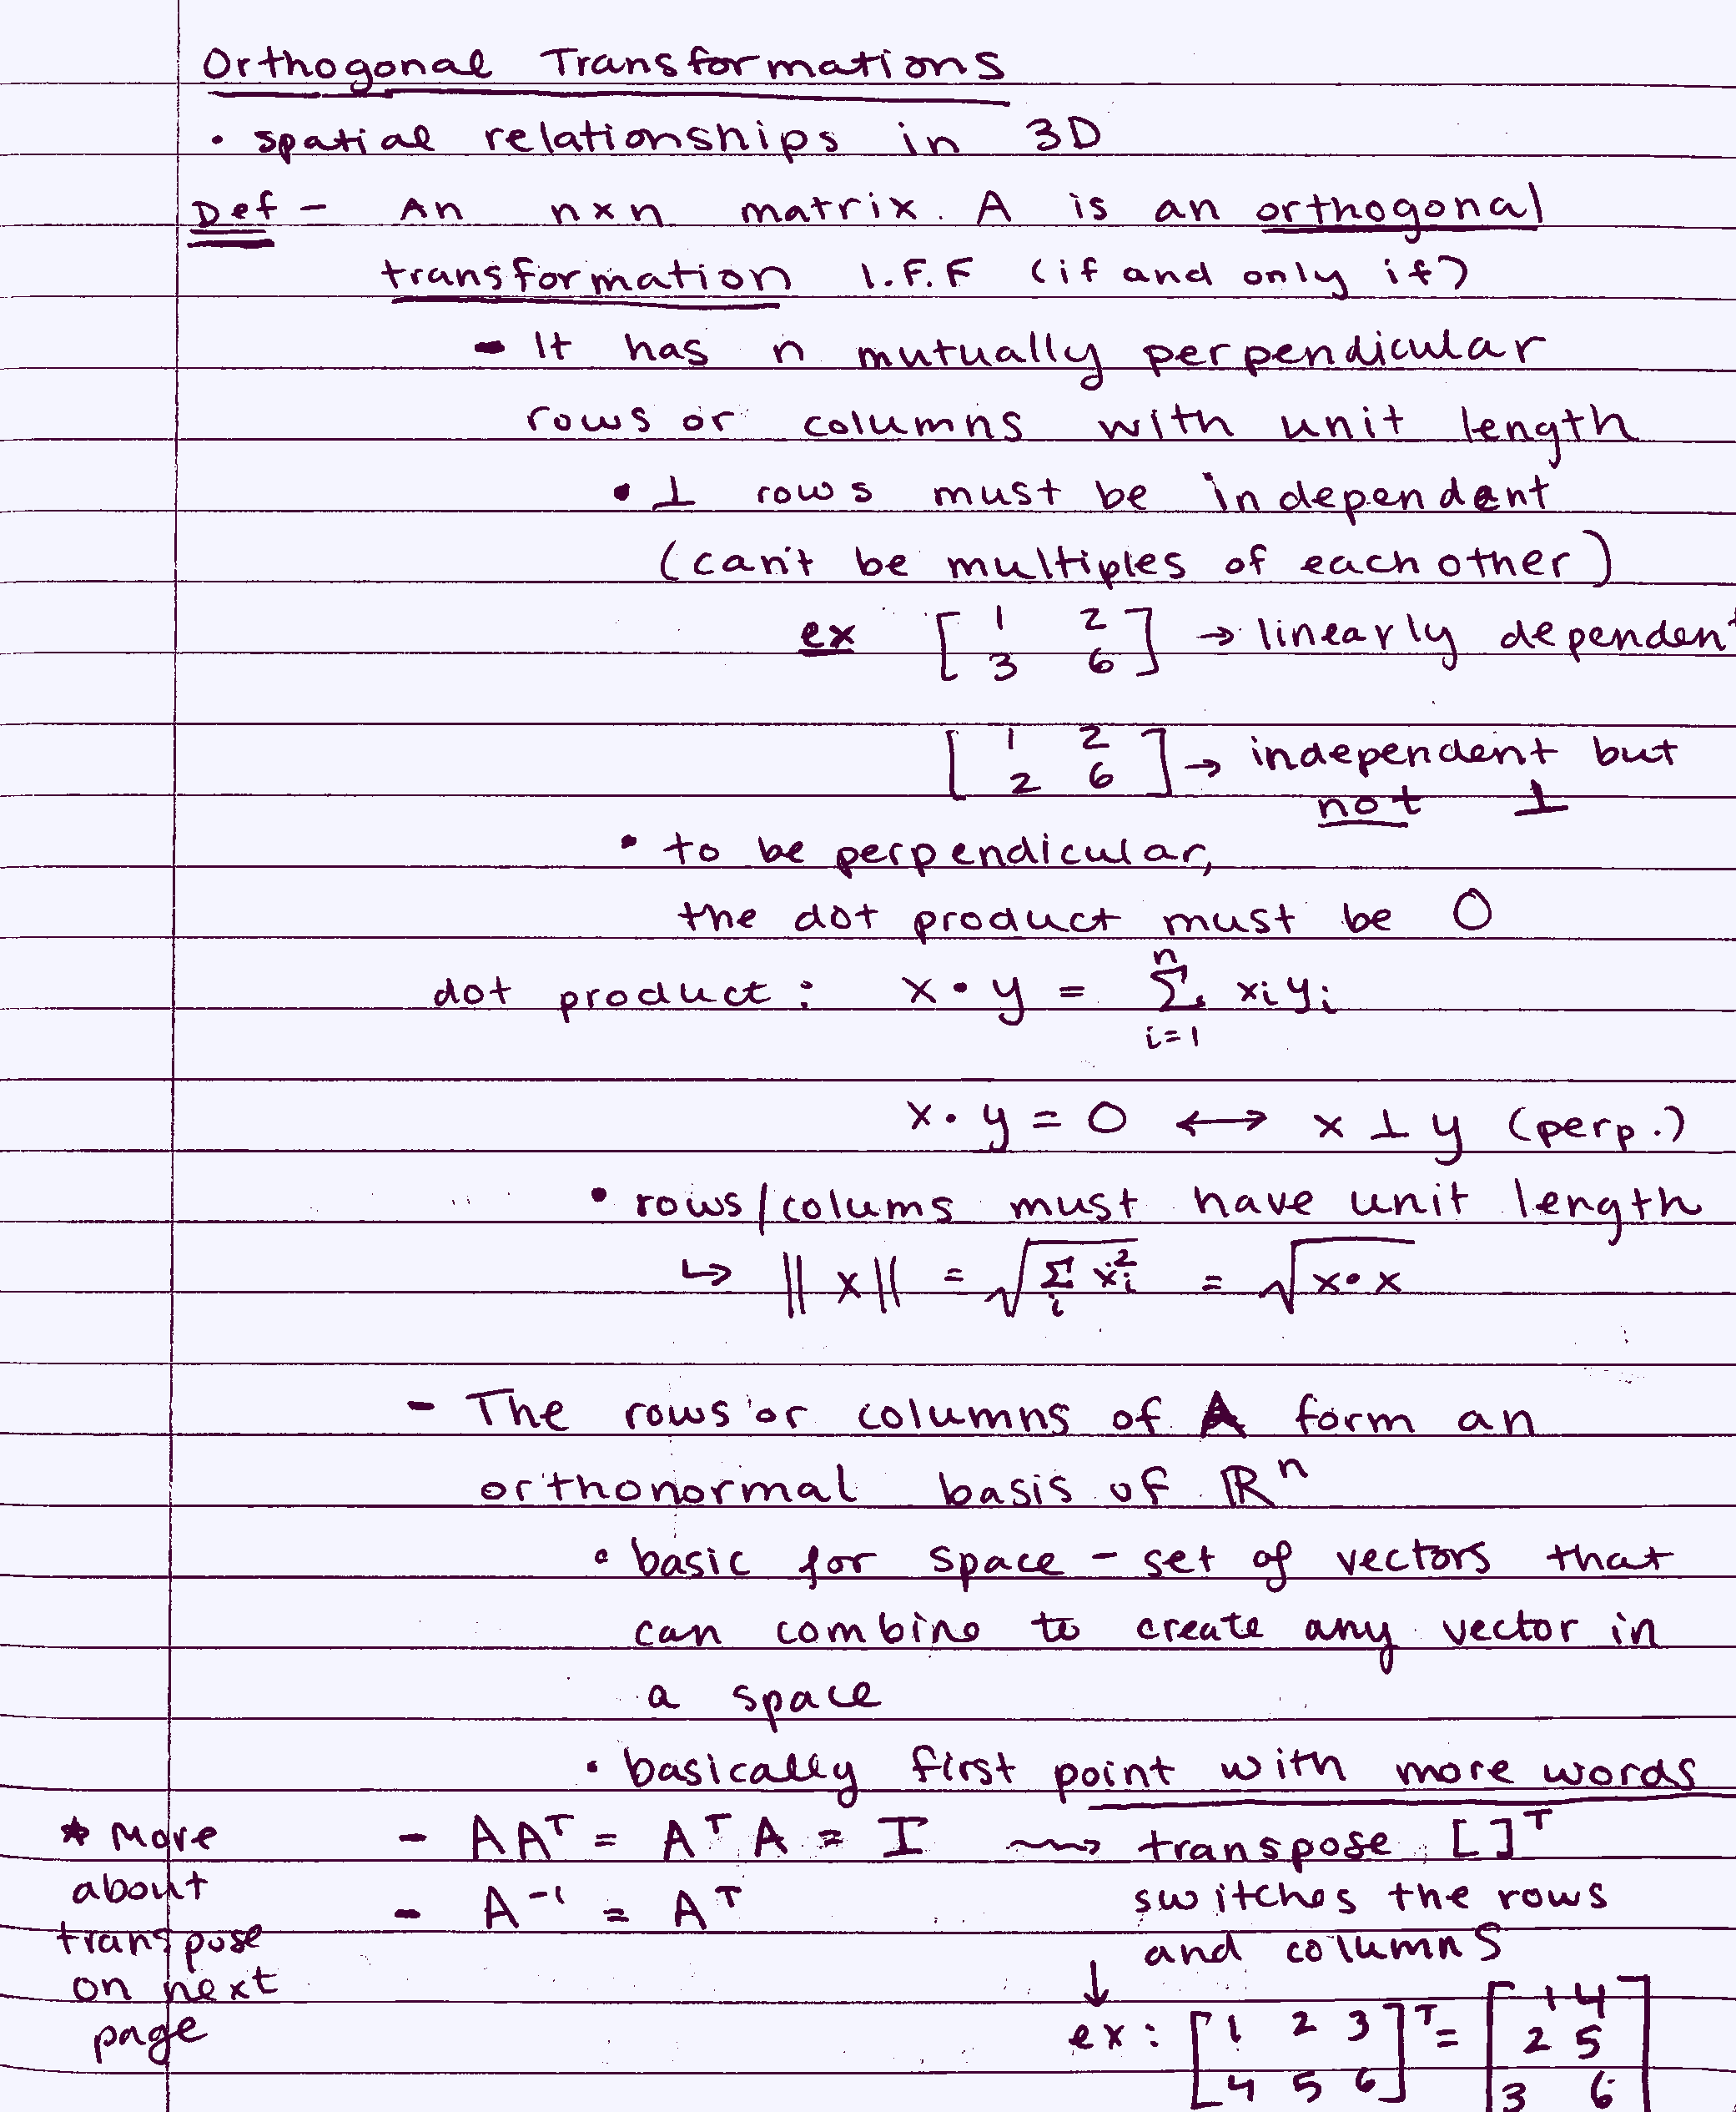 Orthogonal Transformations
• spatial relationships in 3D
Def - An nxn matrix A is an orthogonal
transformation I.F.F (if and only if)
- It has n mutually perpendicular
rows or columns with unit length
• ⊥ rows must be independent
(can't be multiples of each other)
ex [1 2; 3 6] → linearly dependent
[1 2; 2 6] → independent but
not ⊥
• to be perpendicular,
the dot product must be 0
dot product: x • y = Σ_{i=1}^{n} xᵢyᵢ
x • y = 0 ↔ x ⊥ y (perp.)
• rows/colums must have unit length
↳ ||x|| = √(Σᵢ xᵢ²) = √(x•x)
- The rows or columns of A form an
orthonormal basis of ℝⁿ
• basic for space - set of vectors that
can combine to create any vector in
a space
• basically first point with more words
- AAᵀ = AᵀA = I ⇝ transpose [ ]ᵀ
- A⁻¹ = Aᵀ
switches the rows
and columns
↓
ex: [1 2 3; 4 5 6]ᵀ = [1 4; 2 5; 3 6]
* More
about
transpose
on next
page